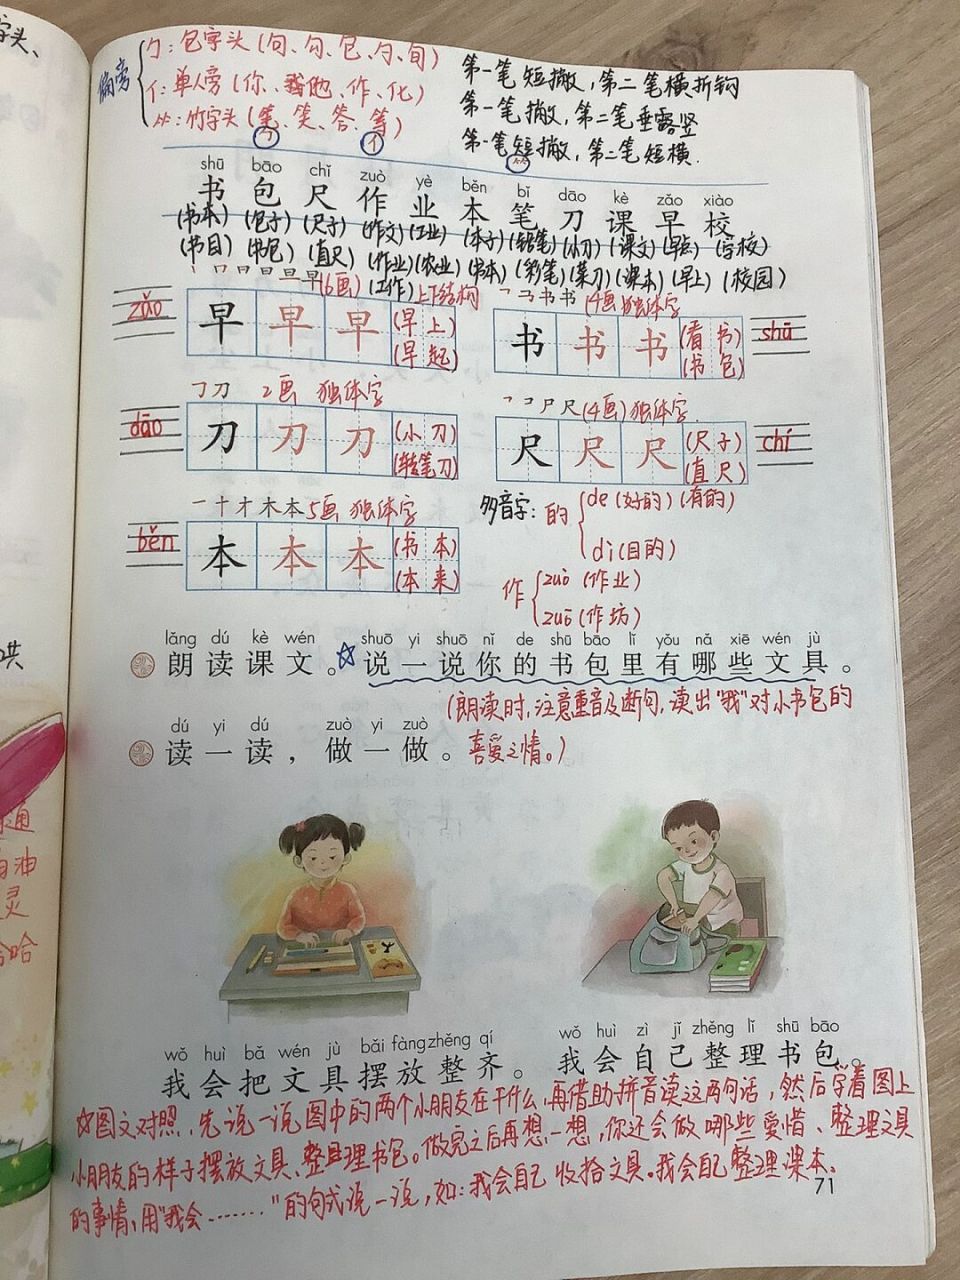 字头、
偏旁
勹：包字头（句、勾、包、勺、旬） 第一笔短撇，第二笔横折钩
亻：单人旁（你、我他、作、化） 第一笔撇，第二笔垂露竖
⺮：竹字头（笔、笑、答、等） 第一笔短撇，第二笔短横.
shū bāo chǐ zuò yè běn bǐ dāo kè zǎo xiào
书 包 尺 作 业 本 笔 刀 课 早 校
（书本）（包子）（尺子）（作文）（工业）（本子）（铅笔）（小刀）（课文）（早晨）（学校）
（书目）（书包）（直尺）（作业）（农业）（书本）（彩笔）（菜刀）（课本）（早上）（校园）
（工作）
丨 口 日 日 旦 早（6画） 上下结构
zǎo 早 早 早（早上）（早起）
㇕ 书书（4画 独体字
书 书 书（看书）（书包） shū
㇆刀 2画 独体字
dāo 刀 刀 刀（小刀）（转笔刀）
㇕ コ 尸 尺（4画）独体字
尺 尺 尺（尺子）（直尺） chí
一 十 才 木 本 5画 独体字
běn 本 本 本（书本）（本来）
多音字：的 de（好的）（有的）
dì（目的）
作 zuò（作业）
zuō（作坊）
lǎng dú kè wén shuō yi shuō nǐ de shū bāo lǐ yǒu nǎ xiē wén jù
朗读课文。☆说一说你的书包里有哪些文具。
（朗读时，注意重音及断句，读出“我”对小书包的
喜爱之情。）
dú yi dú zuò yi zuò
读一读，做一做。
wǒ huì bǎ wén jù bǎi fàng zhěng qí wǒ huì zì jǐ zhěng lǐ shū bāo
我会把文具摆放整齐。 我会自己整理书包。
☆图文对照，先说一说图中的两个小朋友在干什么，再借助拼音读这两句话，然后学着图上
小朋友的样子摆放文具、整理书包。做完之后再想一想，你还会做哪些爱惜、整理文具
的事情，用“我会……”的句式说一说，如：我会自己收拾文具。我会自己整理课本。
71
通
油
灵
哈